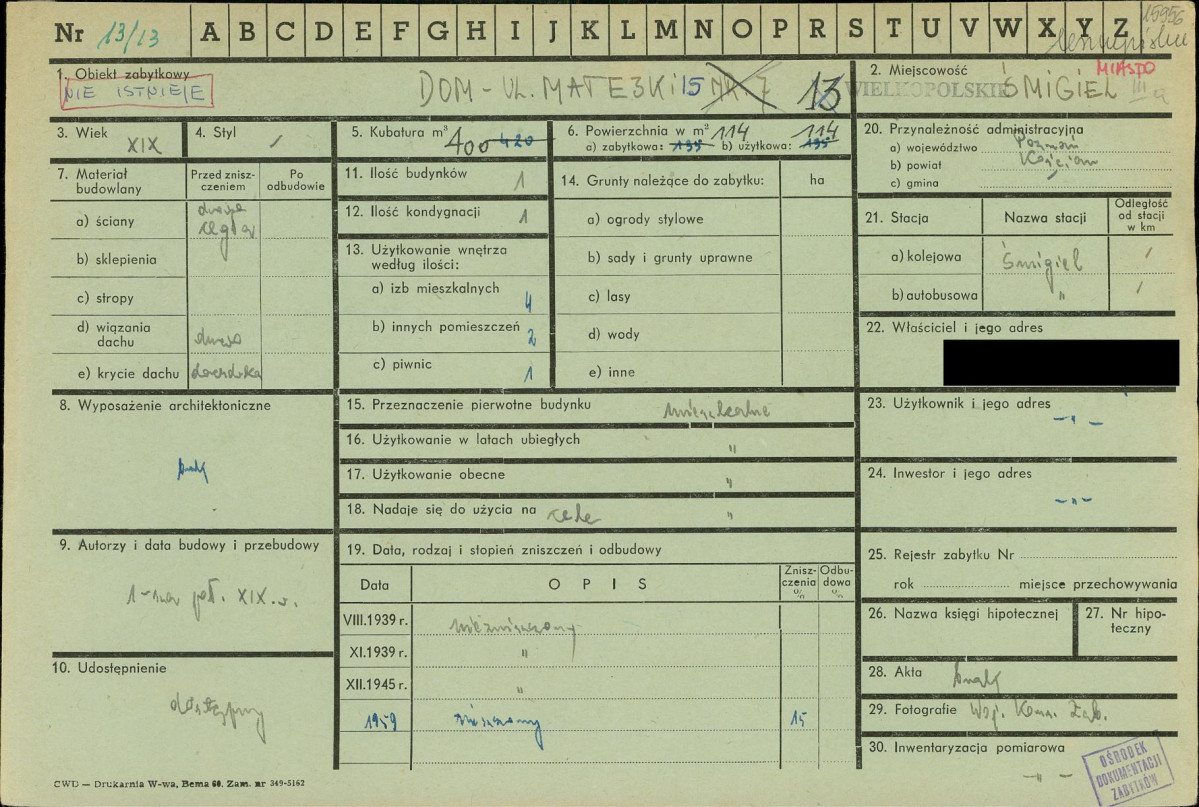 Nr 13/13 A B C D E F G H I J K L M N O P R S T U V W X Y Z 15956
1. Obiekt zabytkowy
NIE ISTNIEJE
DOM - UL. MATEJKI 15 NR 7 13
2. Miejscowość MIASTO
WIELKOPOLSKIE ŚMIGIEL III a
3. Wiek XIX
4. Styl /
5. Kubatura m³ 400 420
6. Powierzchnia w m² 114 114
a) zabytkowa: 135 b) użytkowa: 135
20. Przynależność administracyjna
a) województwo Poznań
b) powiat Kościan
c) gmina /
7. Materiał budowlany
Przed zniszczeniem
Po odbudowie
a) ściany cegła
b) sklepienia
c) stropy
d) wiązania dachu
e) krycie dachu
11. Ilość budynków 1
12. Ilość kondygnacji 1
13. Użytkowanie wnętrza według ilości:
a) izb mieszkalnych 4
b) innych pomieszczeń 2
c) piwnic 1
14. Grunty należące do zabytku: ha
a) ogrody stylowe
b) sady i grunty uprawne
c) lasy
d) wody
e) inne
21. Stacja
Nazwa stacji
Odległość od stacji w km
a) kolejowa Śmigiel /
b) autobusowa " /
22. Właściciel i jego adres
8. Wyposażenie architektoniczne
brak
15. Przeznaczenie pierwotne budynku mieszkalne
16. Użytkowanie w latach ubiegłych "
17. Użytkowanie obecne "
18. Nadaje się do użycia na cele "
23. Użytkownik i jego adres
- " -
24. Inwestor i jego adres
- " -
9. Autorzy i data budowy i przebudowy
1-sza poł. XIX w.
19. Data, rodzaj i stopień zniszczeń i odbudowy
Data OPIS Zniszczenia % Odbudowa %
VIII.1939 r. niezniszczony
XI.1939 r. "
XII.1945 r. "
1959 zniszczony 15
25. Rejestr zabytku Nr
rok miejsce przechowywania
26. Nazwa księgi hipotecznej
27. Nr hipoteczny
10. Udostępnienie
dostępny
28. Akta brak
29. Fotografie Woj. Kons. Zab.
30. Inwentaryzacja pomiarowa
- " -
OŚRODEK
DOKUMENTACJI
ZABYTKÓW
CWD — Drukarnia W-wa, Bema 60. Zam. nr 349-5162